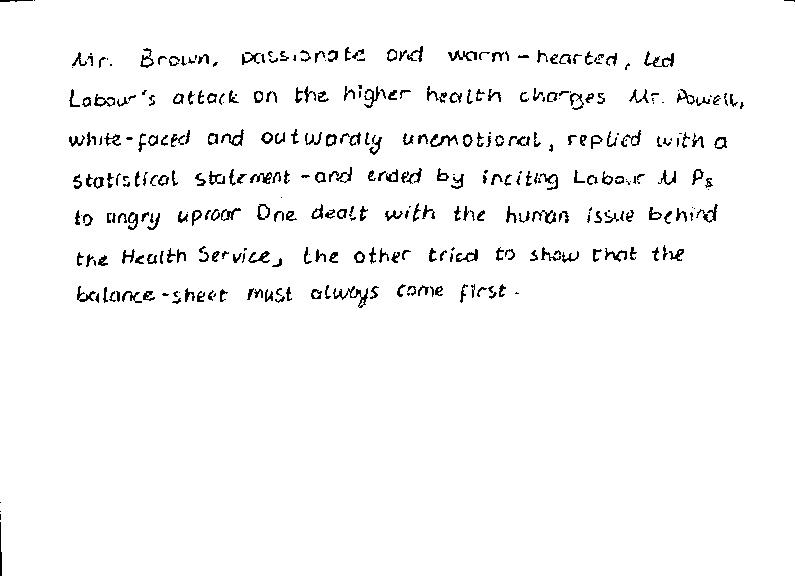 Mr. Brown, passionate and warm-hearted, led
Labour's attack on the higher health charges Mr. Powell,
white-faced and outwardly unemotional, replied with a
statistical statement - and ended by inciting Labour M Ps
to angry uproar One dealt with the human issue behind
the Health Service, the other tried to show that the
balance-sheet must always come first.